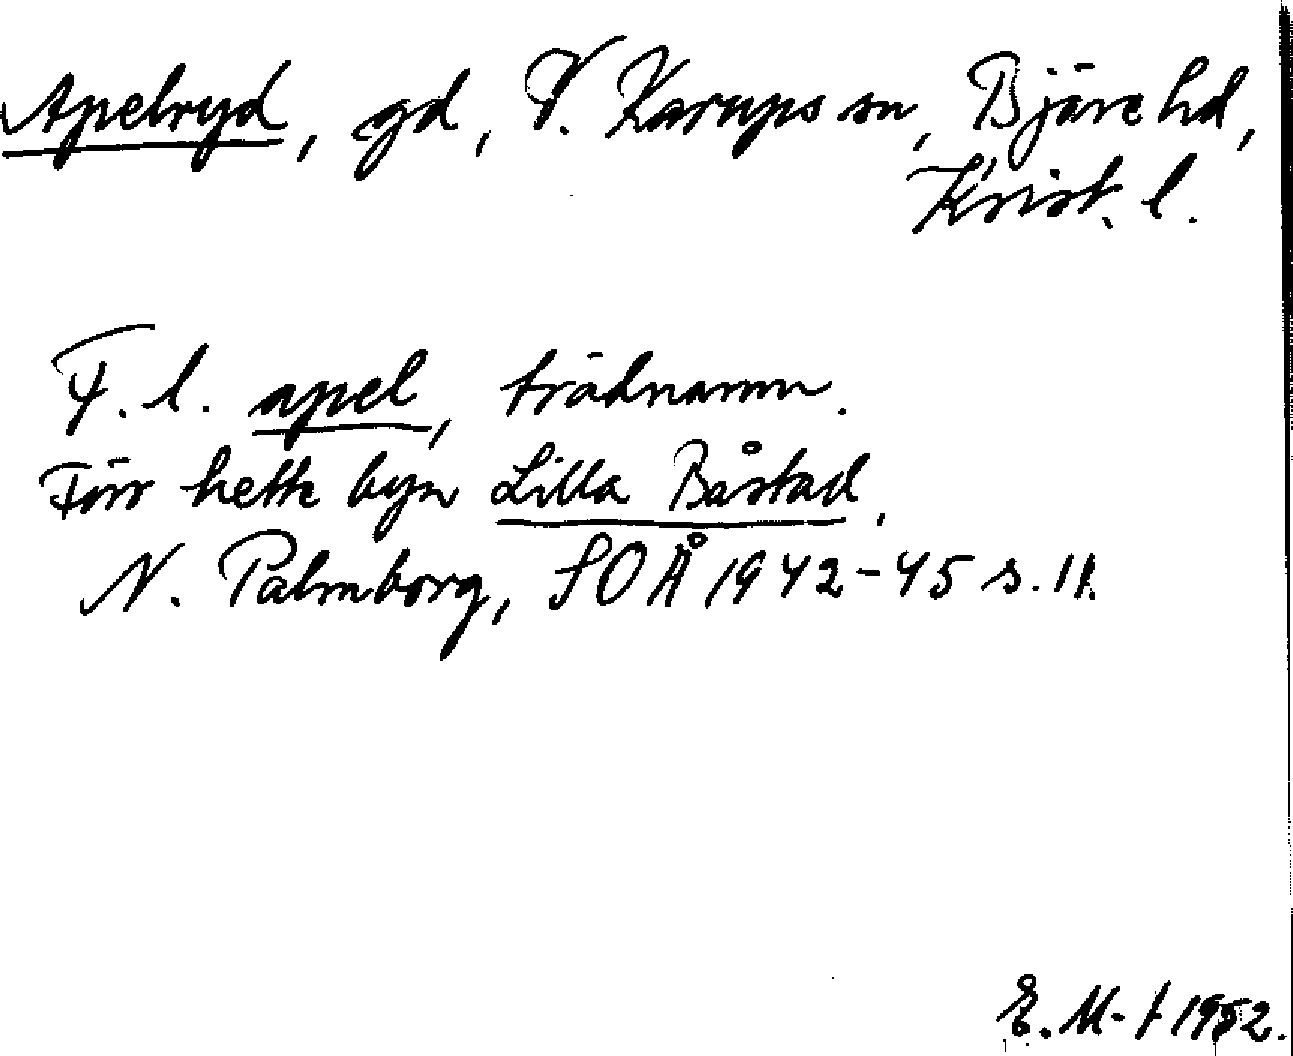 Apelryd, gd, V. Karups sn, Bjäre hd,
Krist. l.
F. l. apel, trädnamn.
Förr hette byn Lilla Båstad.
N. Palmborg, SOÅ 1942-45 s. 11.
E. M-t 1952.